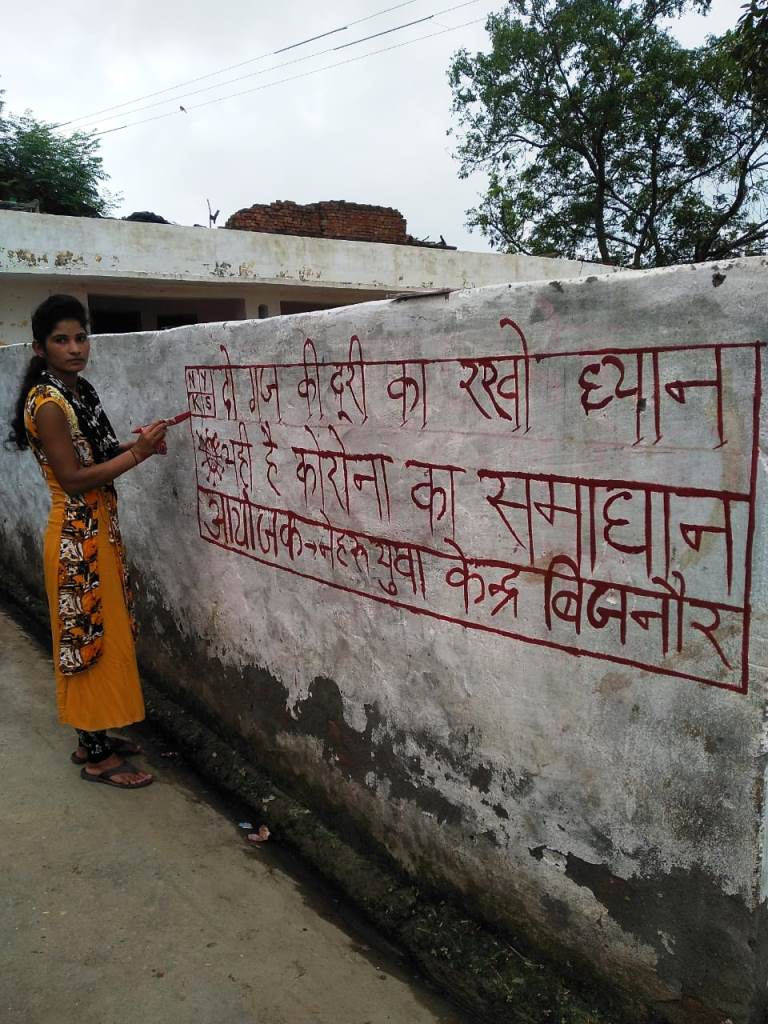 NY
KS
दो गज की दूरी का रखो ध्यान
यही है कोरोना का समाधान
आयोजक→नेहरू युवा केन्द्र बिजनौर